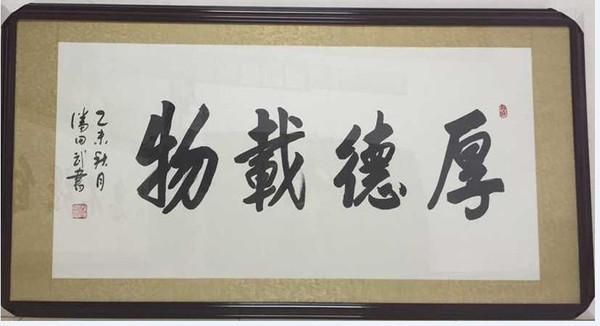 厚德載物
乙未秋月
潘田武書